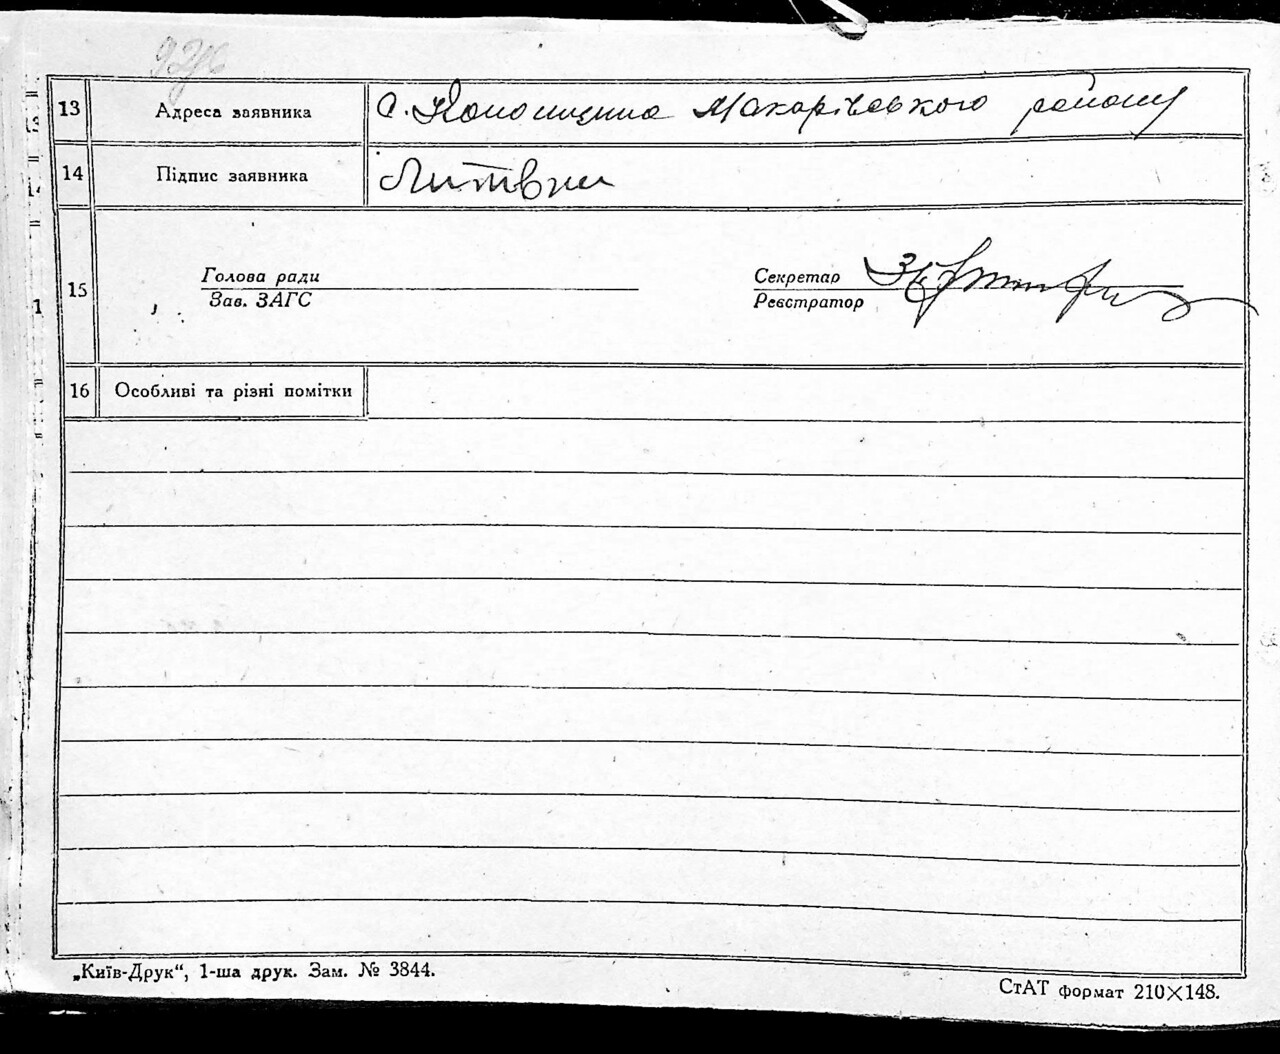 13 Адреса заявника с. Колонщина Макарівського району
14 Підпис заявника Литвин
15 Голова ради Секретар
Зав. ЗАГС Реєстратор
16 Особливі та різні помітки
„Київ-Друк“, 1-ша друк. Зам. № 3844.
СтАТ формат 210×148.